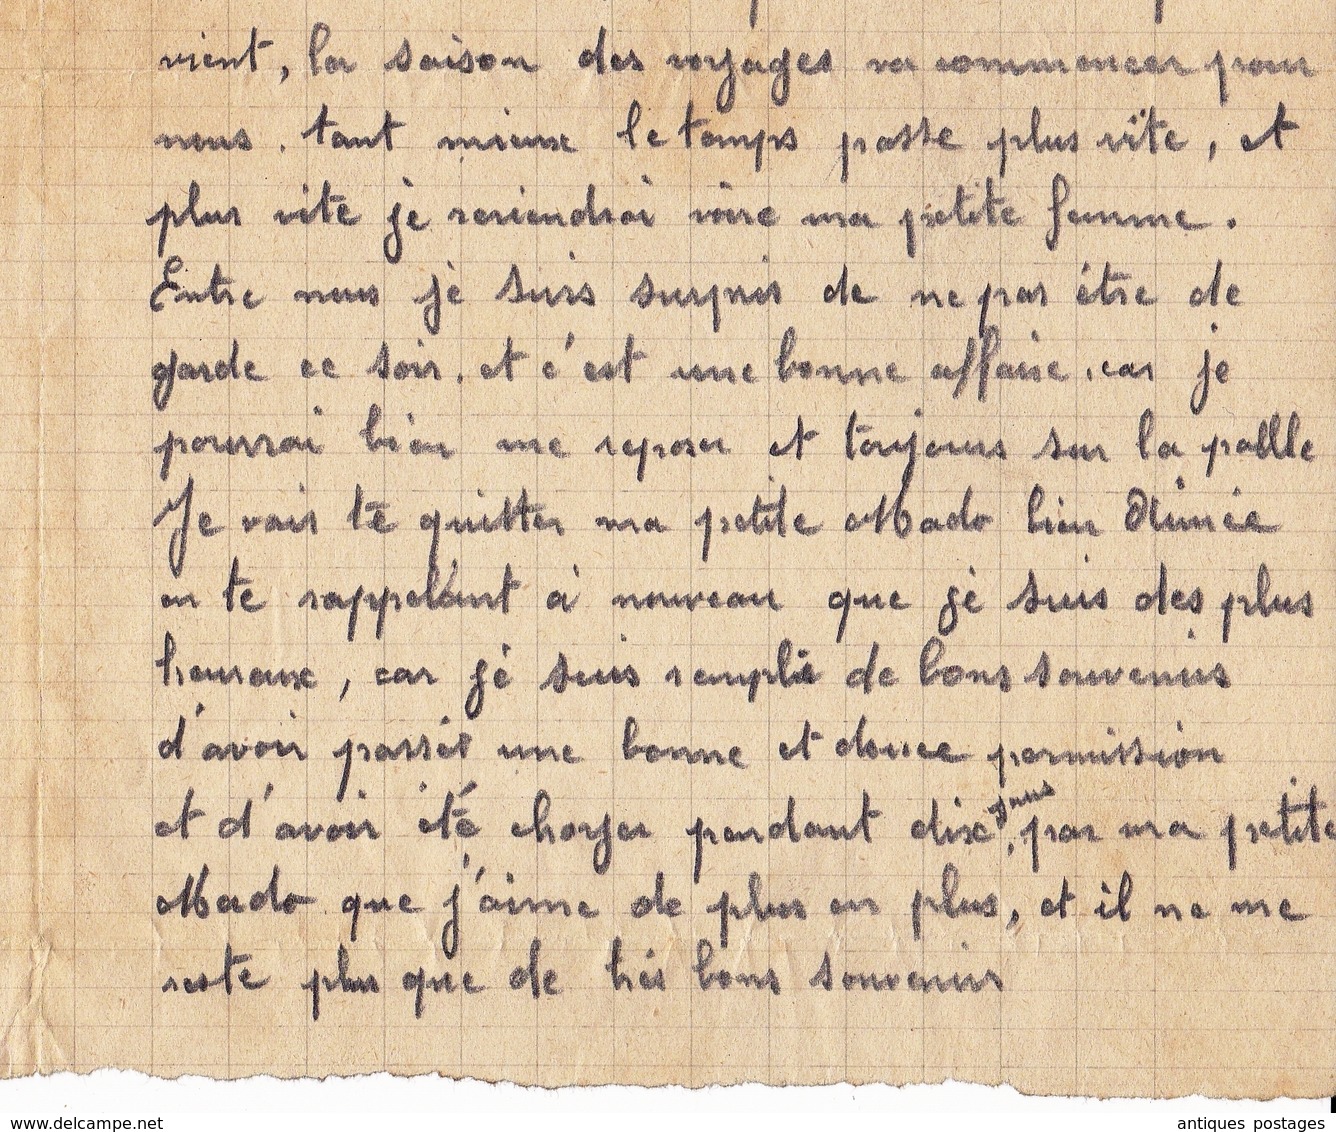 vient, la saison des voyages va commencer pour
nous. tant mieux le temps passe plus vite, et
plus vite je reviendrai voire ma petite femme.
Entre nous je suis surpris de ne pas être de
garde ce soir. et c'est une bonne affaire, car je
pourrai bien me reposer et toujours sur la paille
Je vais te quitter ma petite Mado bien Aimée
en te rappelant à nouveau que je suis des plus
heureux, car je suis rempli de bons souvenirs
d'avoir passer une bonne et douce permission
et d'avoir été choyer pendant dix jours, par ma petite
Mado que j'aime de plus en plus, et il ne me
reste plus que de très bons souvenirs
www.delcampe.net
antiques postages